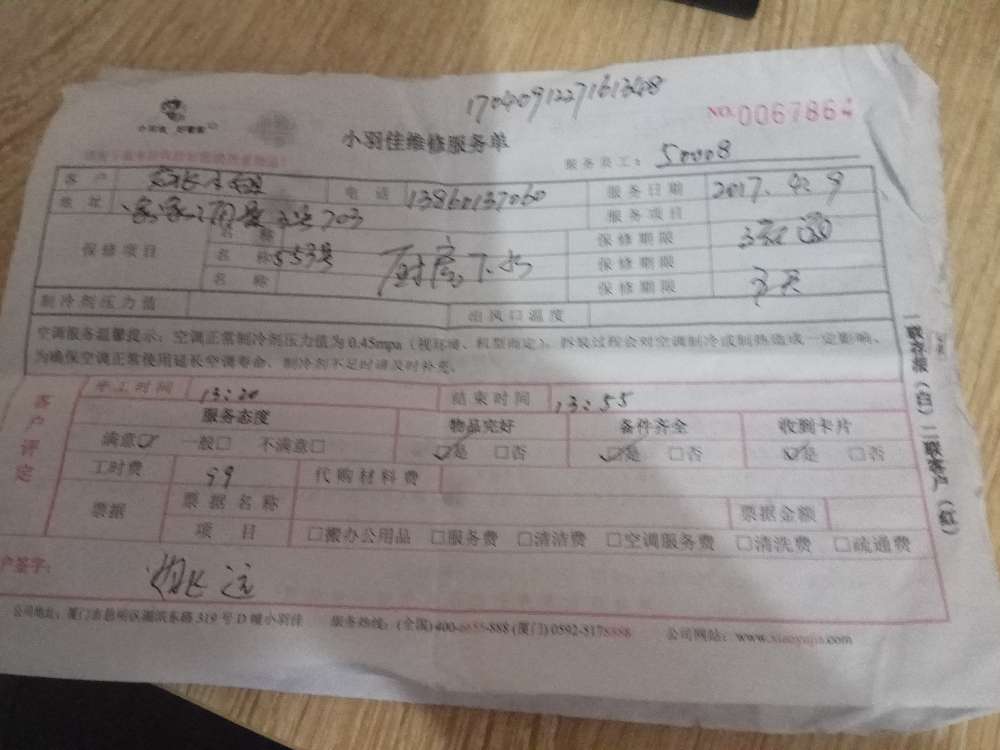 1704091227161348
小羽佳 好管家
NO.0067864
小羽佳维修服务单
服务员工：50008
客户 电话 13860137060 服务日期 2017.4.9
地址 703 服务项目
保修项目 名称 553号 厨房下水 保修期限
保修期限
名称 保修期限 3天
制冷剂压力值 出风口温度
空调服务温馨提示：空调正常制冷剂压力值为0.45mpa（视环境、机型而定），拆装过程会对空调制冷或制热造成一定影响，
为确保空调正常使用延长空调寿命，制冷剂不足时请及时补充。
客户评定
开工时间 13:20 结束时间 13:55
服务态度 物品完好 备件齐全 收到卡片
满意☑ 一般□ 不满意□ ☑是 □否 ☑是 □否 ☑是 □否
工时费 99 代购材料费
票据 票据名称 票据金额
项目 □搬办公用品 □服务费 □清洁费 □空调服务费 □清洗费 □疏通费
户签字：
公司地址：厦门市思明区湖滨东路319号D幢小羽佳 服务热线：(全国)400-6655-888 (厦门)0592-5178888 公司网站：www.xiaoyujia.com
一联存根（白）二联客户（红）